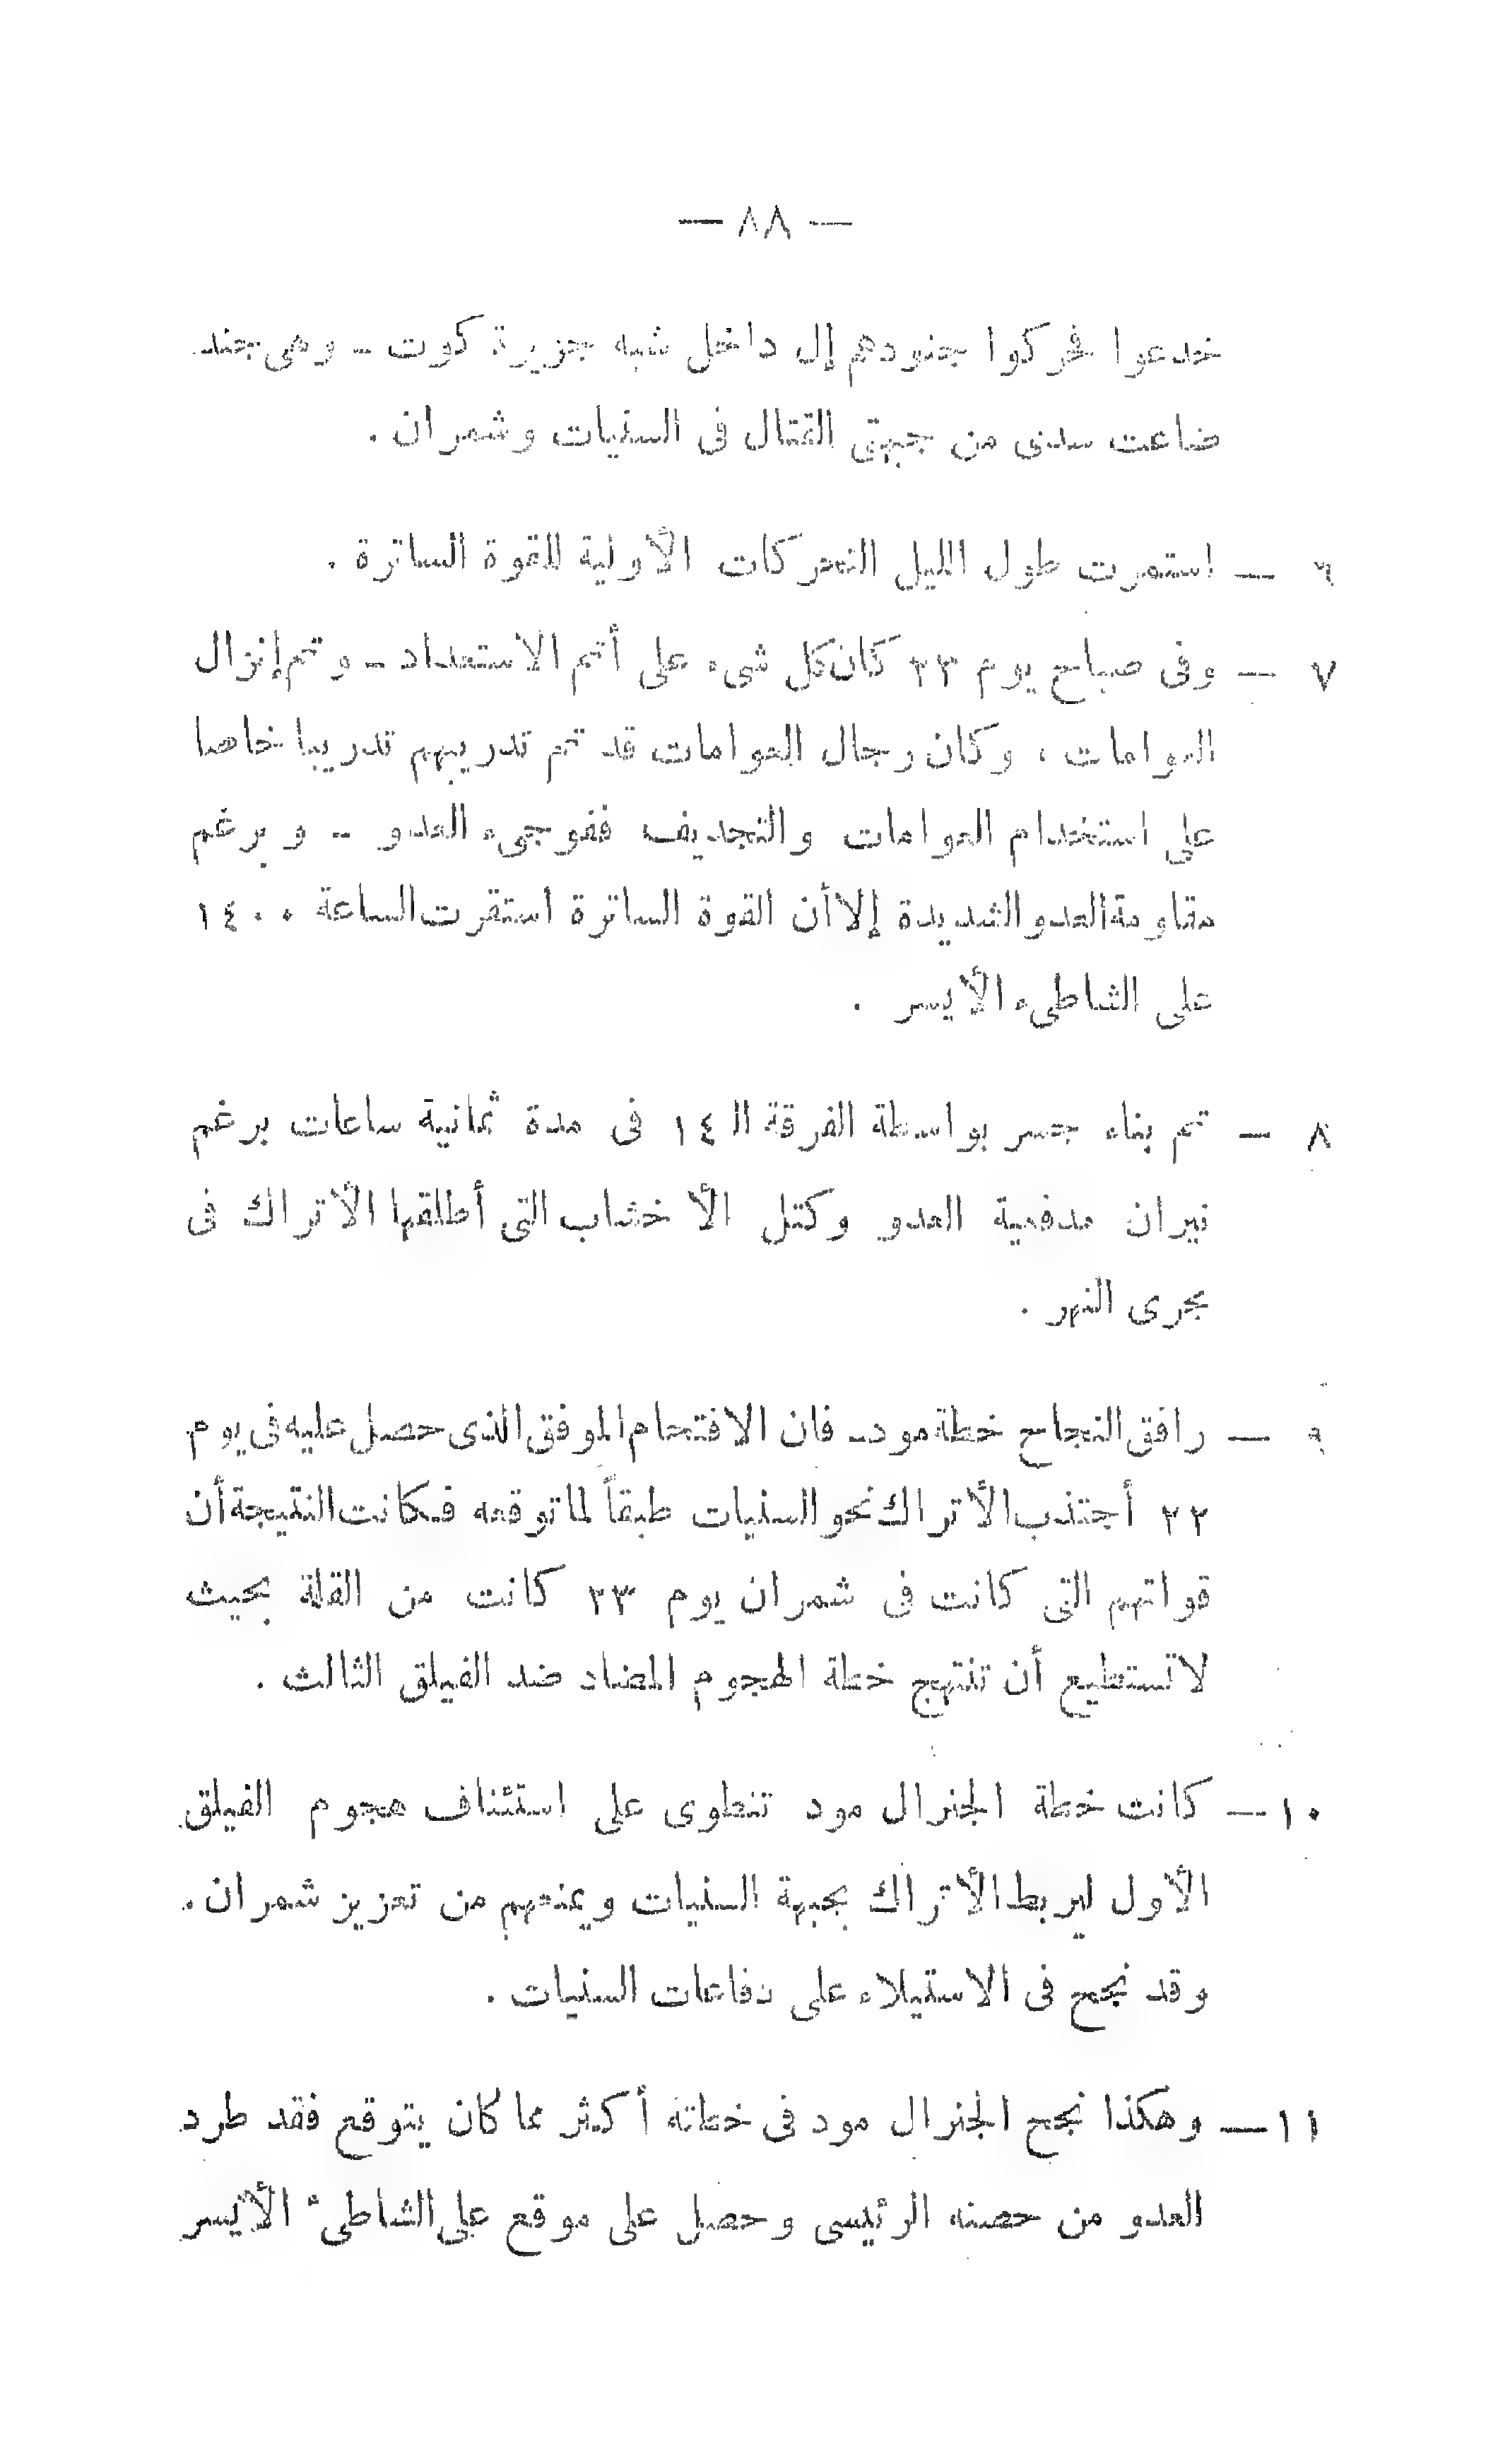 — ٨٨ —
خدعوا فحركوا جنودهم إلى داخل شبه جزيرة كوت - وهى جند
ضاعت سدى من جبهتى القتال فى السنيات وشمران .
٦ — استمرت طول الليل التحركات الأولية للقوة الساترة .
٧ — وفى صباح يوم ٢٣ كان كل شىء على أتم الاستعداد - وتم إنزال
العوامات ، وكان رجال العوامات قد تم تدريبهم تدريبا خاصا
على استخدام العوامات والتجديف ففوجىء العدو - وبرغم
مقاومة العدو الشديدة إلا أن القوة الساترة استقرت الساعة ١٤٠٠
على الشاطىء الأيسر .
٨ — تم بناء جسر بواسطة الفرقة الـ ١٤ فى مدة ثمانية ساعات برغم
نيران مدفعية العدو وكتل الأخشاب التى أطلقها الأتراك فى
مجرى النهر .
٩ — رافق النجاح خطة مود - فان الاقتحام الموفق الذى حصل عليه فى يوم
٢٢ أجتذب الأتراك نحو السنيات طبقاً لما توقعه فكانت النتيجة أن
قواتهم التى كانت فى شمران يوم ٢٣ كانت من القلة بحيث
لا تستطيع أن تنتهج خطة الهجوم المضاد ضد الفيلق الثالث .
١٠ — كانت خطة الجنرال مود تنطوى على استئناف هجوم الفيلق
الأول ليربط الأتراك بجبهة السنيات ويمنعهم من تعزيز شمران .
وقد نجح فى الاستيلاء على دفاعات السنيات .
١١ — وهكذا نجح الجنرال مود فى خطته أكثر مما كان يتوقع فقد طرد
العدو من حصنه الرئيسى وحصل على موقع على الشاطىء الأيسر